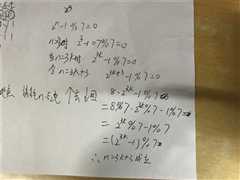 2ⁿ-1%7=0
n=3时 2³-1=7%7=0
当n=3k时 2³ᵏ-1%7=0
令n=3k+3 2³ᵏ⁺³-1%7=0
8·2³ᵏ-1%7=0
=8%7·2³ᵏ%7-1%7=0
=2³ᵏ%7-1%7
=(2³ᵏ-1)%7=0
∴n=3k+3成立